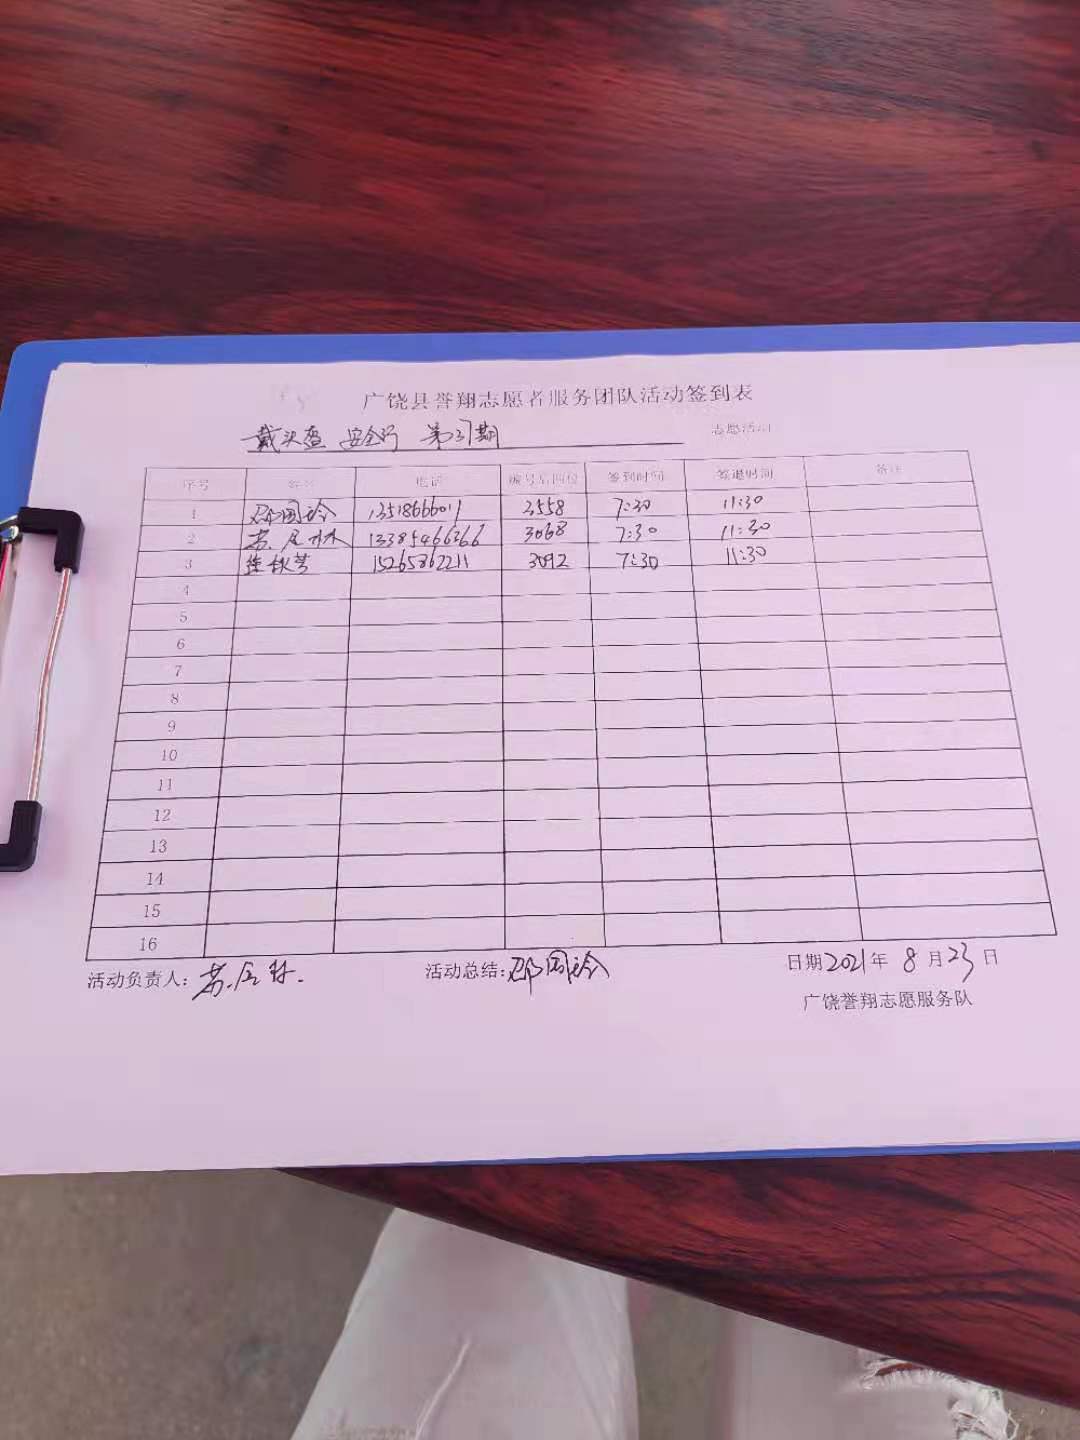 广饶县誉翔志愿者服务团队活动签到表
戴头盔 安全行 第37期 志愿活动
序号 签名 电话 编号后四位 签到时间 签退时间 备注
1 邓国玲 1351866601 3558 7:30 11:30
2 13385466366 3068 7:30 11:30
3 15265862211 3092 7:30 11:30
4
5
6
7
8
9
10
11
12
13
14
15
16
活动负责人: 活动总结: 邓国玲 日期2021年8月23日
广饶誉翔志愿服务队